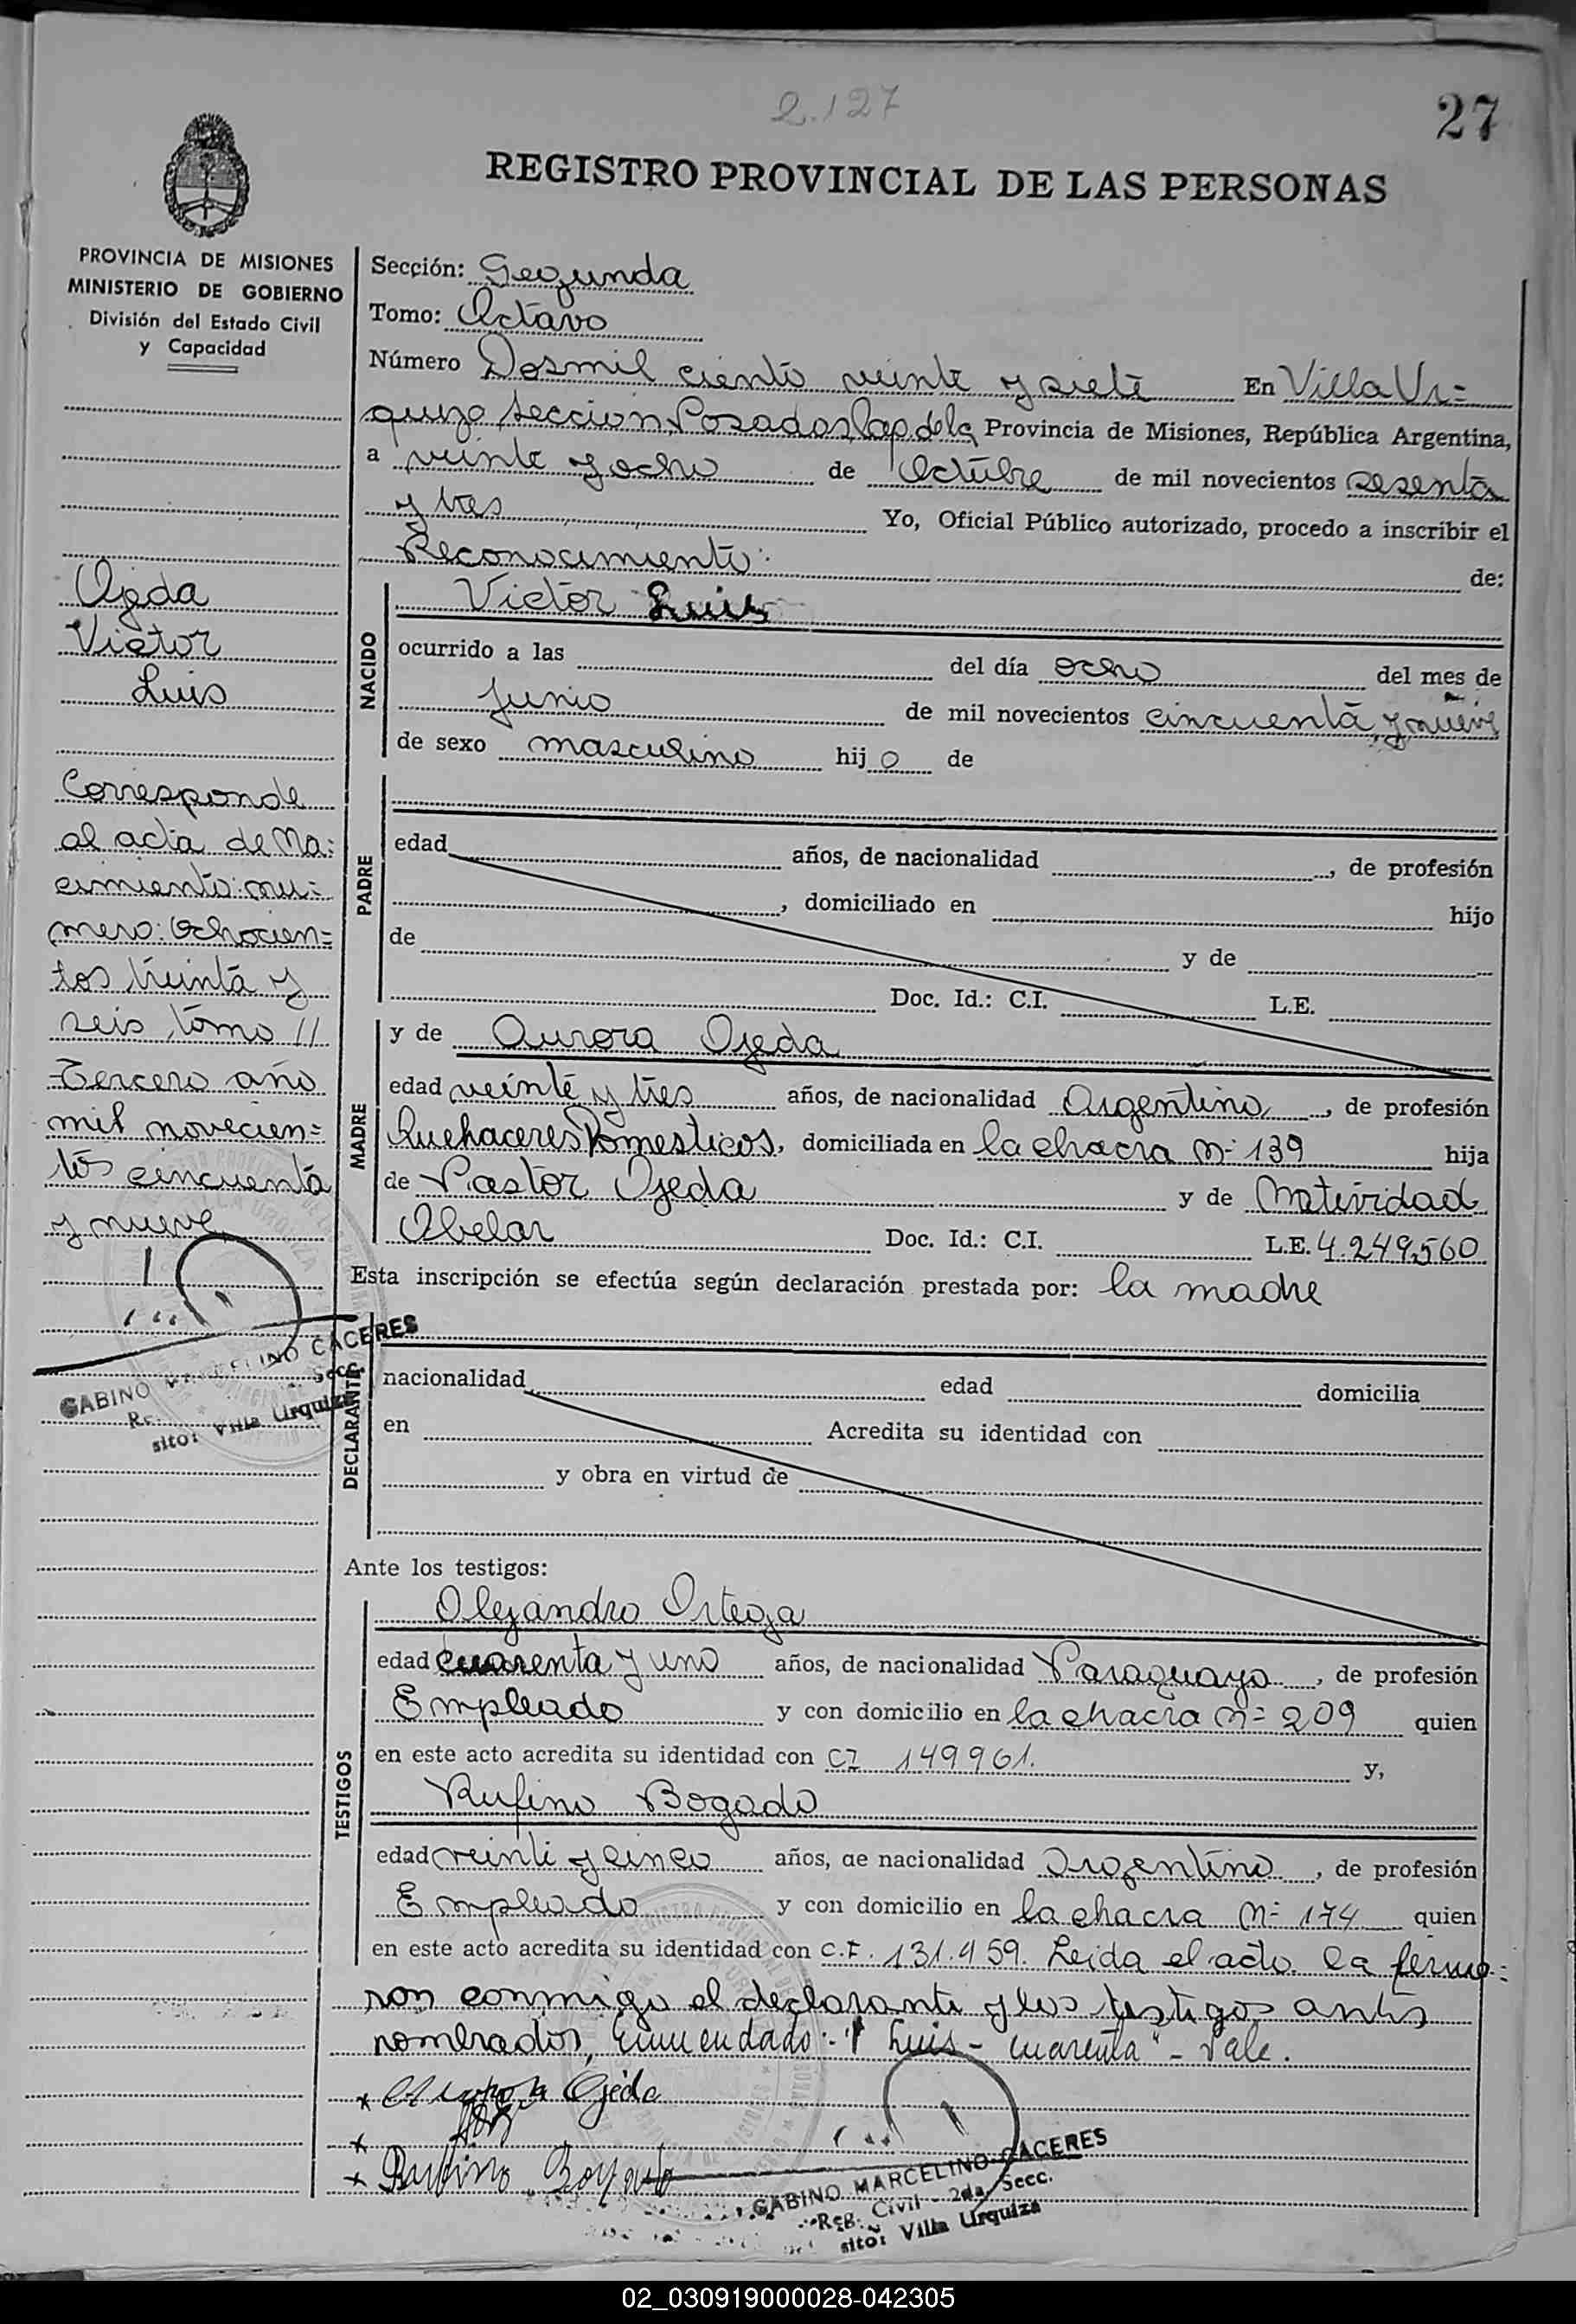 2.127
27
REGISTRO PROVINCIAL DE LAS PERSONAS
PROVINCIA DE MISIONES
MINISTERIO DE GOBIERNO
División del Estado Civil
y Capacidad
Ojeda
Victor
Luis
Corresponde
al acta de Na=
cimiento nu=
mero: Ochocien=
tos treinta y
seis, tomo //
Tercero año
mil novecien=
tos cincuenta
y nueve
GABINO CACERES
Secc.
sito: Villa Urquiza
Sección: Segunda
Tomo: Octavo
Número Dosmil ciento veinte y siete En Villa Ur=
quiza sección Posadas Cap. de la Provincia de Misiones, República Argentina,
a veinte y ocho de Octubre de mil novecientos sesenta
y tres Yo, Oficial Público autorizado, procedo a inscribir el
Reconocimiento: de:
NACIDO
Victor Luis
ocurrido a las del día ocho del mes de
Junio de mil novecientos cincuenta y nueve
de sexo masculino hijo de
PADRE
edad años, de nacionalidad , de profesión
, domiciliado en hijo
de y de
Doc. Id.: C.I. L.E.
MADRE
y de Aurora Ojeda
edad veinte y tres años, de nacionalidad Argentina, de profesión
Quehaceres Domesticos, domiciliada en la chacra Nº 139 hija
de Pastor Ojeda y de Natividad
Abelar Doc. Id.: C.I. L.E. 4.249.560
Esta inscripción se efectúa según declaración prestada por: la madre
DECLARANTE
nacionalidad edad domicilia
en Acredita su identidad con
y obra en virtud de
Ante los testigos:
TESTIGOS
Alejandro Ortega
edad cuarenta y uno años, de nacionalidad Paraguaya, de profesión
Empleado y con domicilio en la chacra Nº 209 quien
en este acto acredita su identidad con CI 149961. y,
Rufino Bogado
edad veinti y cinco años, de nacionalidad Argentino, de profesión
Empleado y con domicilio en la chacra Nº 174 quien
en este acto acredita su identidad con C.I. 131.959. Leida el acta la firma=
ron conmigo el declarante y los testigos antes
nombrados, Enmendado: "Luis - cuarenta" - Vale.
x Aurora Ojeda
x
x Rufino Bogado
GABINO MARCELINO CACERES
Reg. Civil - 2da. Secc.
sito: Villa Urquiza
02_030919000028-042305